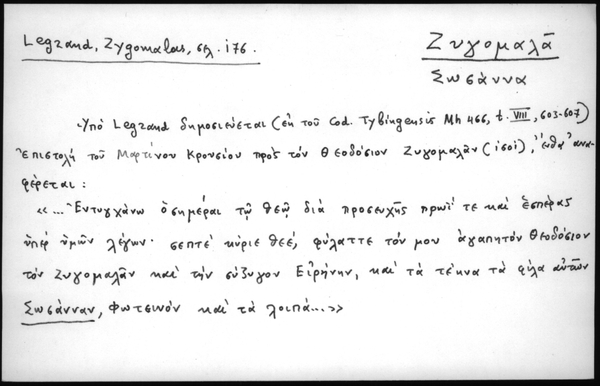 Legrand, Zygomalas, σελ. 176.
Ζυγομαλᾶ
Σωσάννα
Ὑπό Legrand δημοσιεύεται (ἐκ τοῦ Cod. Tybingensis Mh 466, t. VIII, 603-607)
Ἐπιστολή τοῦ Μαρτίνου Κρουσίου πρός τόν Θεοδόσιον Ζυγομαλᾶν (1581), ἔνθα ἀνα-
φέρεται:
«... Ἐντυγχάνω ὁσημέραι τῷ θεῷ διά προσευχῆς πρωΐ τε καί ἑσπέρας
ὑπέρ ὑμῶν λέγων· σεπτέ κύριε θεέ, φύλαττε τόν μου ἀγαπητόν Θεοδόσιον
τόν Ζυγομαλᾶν καί τήν σύζυγον Εἰρήνην, καί τά τέκνα τά φίλα αὐτῶν
Σωσάνναν, Φωτεινόν καί τά λοιπά...»